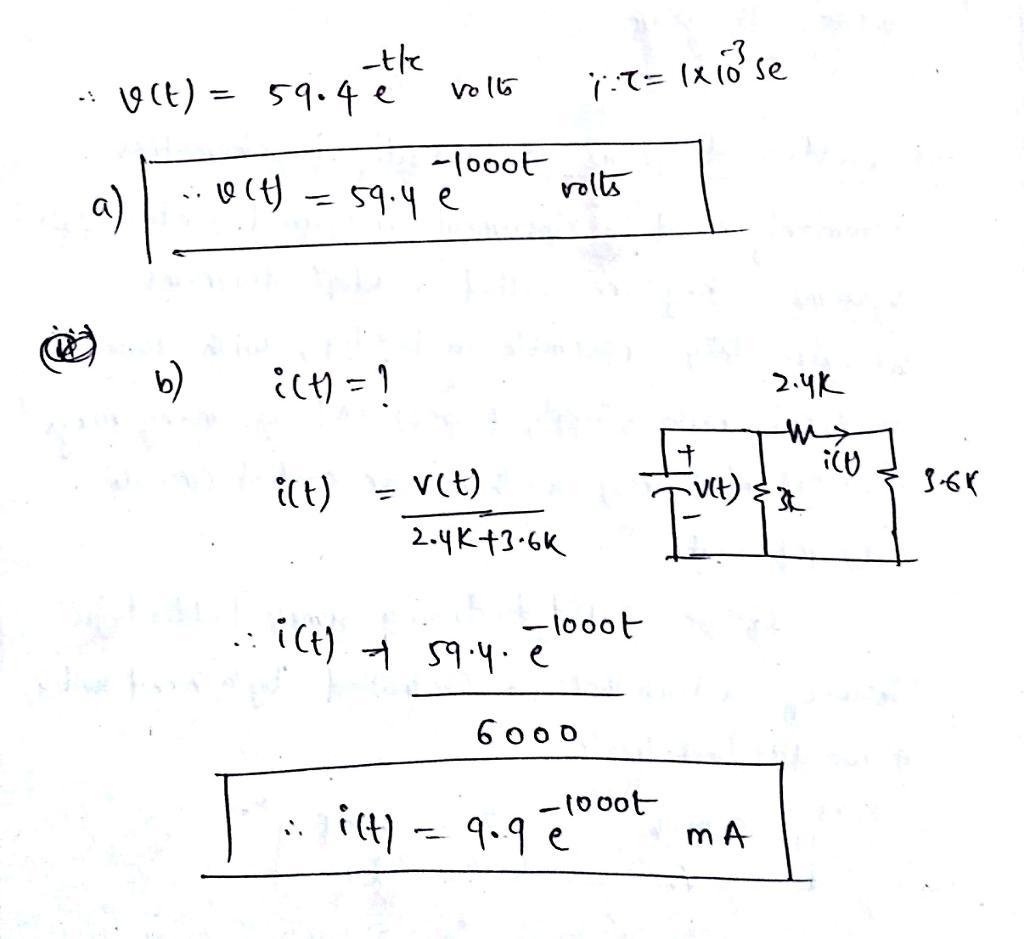 ∴ v(t) = 59.4 e^{-t/τ} volts ∵ τ = 1×10^{-3} se
a) ∴ v(t) = 59.4 e^{-1000t} volts
b) i(t) = ?
2.4K
i(t) = v(t) / (2.4K+3.6K)
+ v(t) - 3K i(t) 3.6K
∴ i(t) → 59.4. e^{-1000t} / 6000
∴ i(t) = 9.9 e^{-1000t} mA